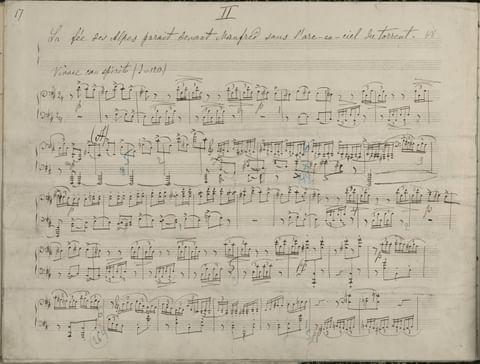 17
II
La fée des Alpes parait devant Manfred sous l'arc-en-ciel du torrent.
Vivace con spirito
A